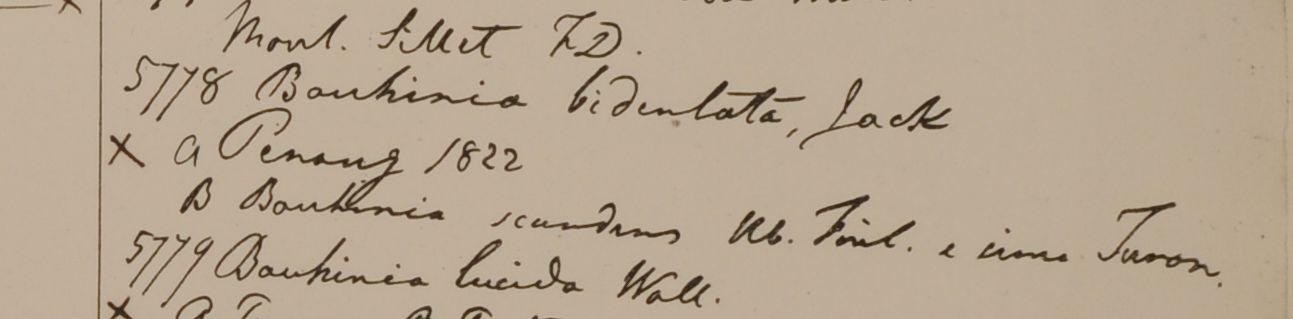 Mont. Sillet F.D.
5778 Bauhinia bidentata, Jack
X a Penang 1822
B Bauhinia scandens Hb. Finl. e Turon.
5779 Bauhinia lucida Wall.
X